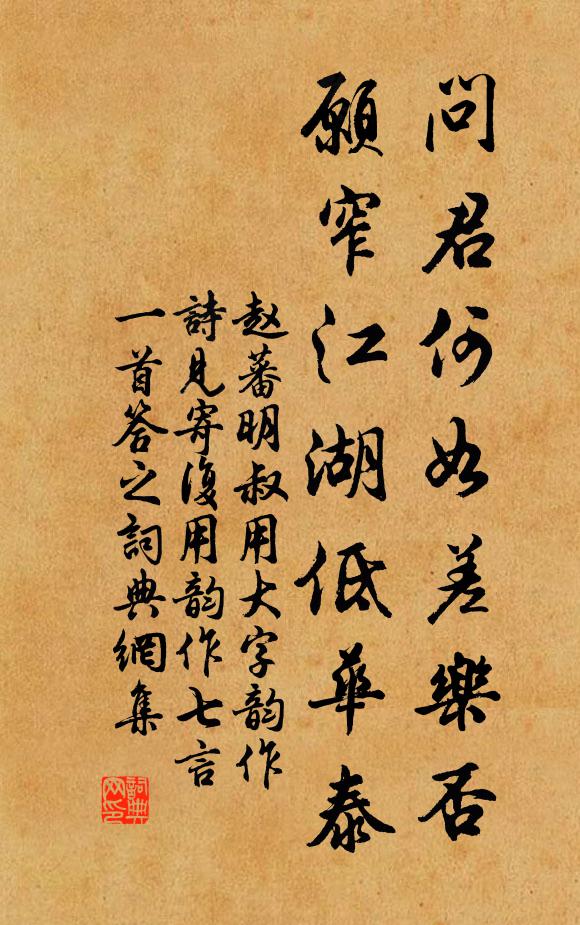 問君何如差樂否
願窄江湖低華泰
赵蕃明叔用大字韵作
詩見寄復用韵作七言
一首答之詞典網集
詞典网印